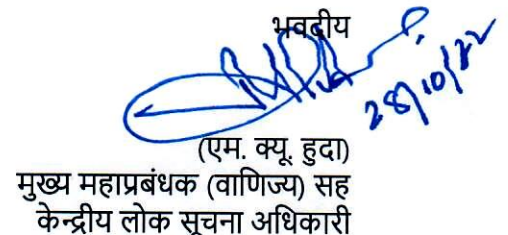 भवदीय
28/10/22
(एम. क्यू. हुदा)
मुख्य महाप्रबंधक (वाणिज्य) सह
केन्द्रीय लोक सूचना अधिकारी